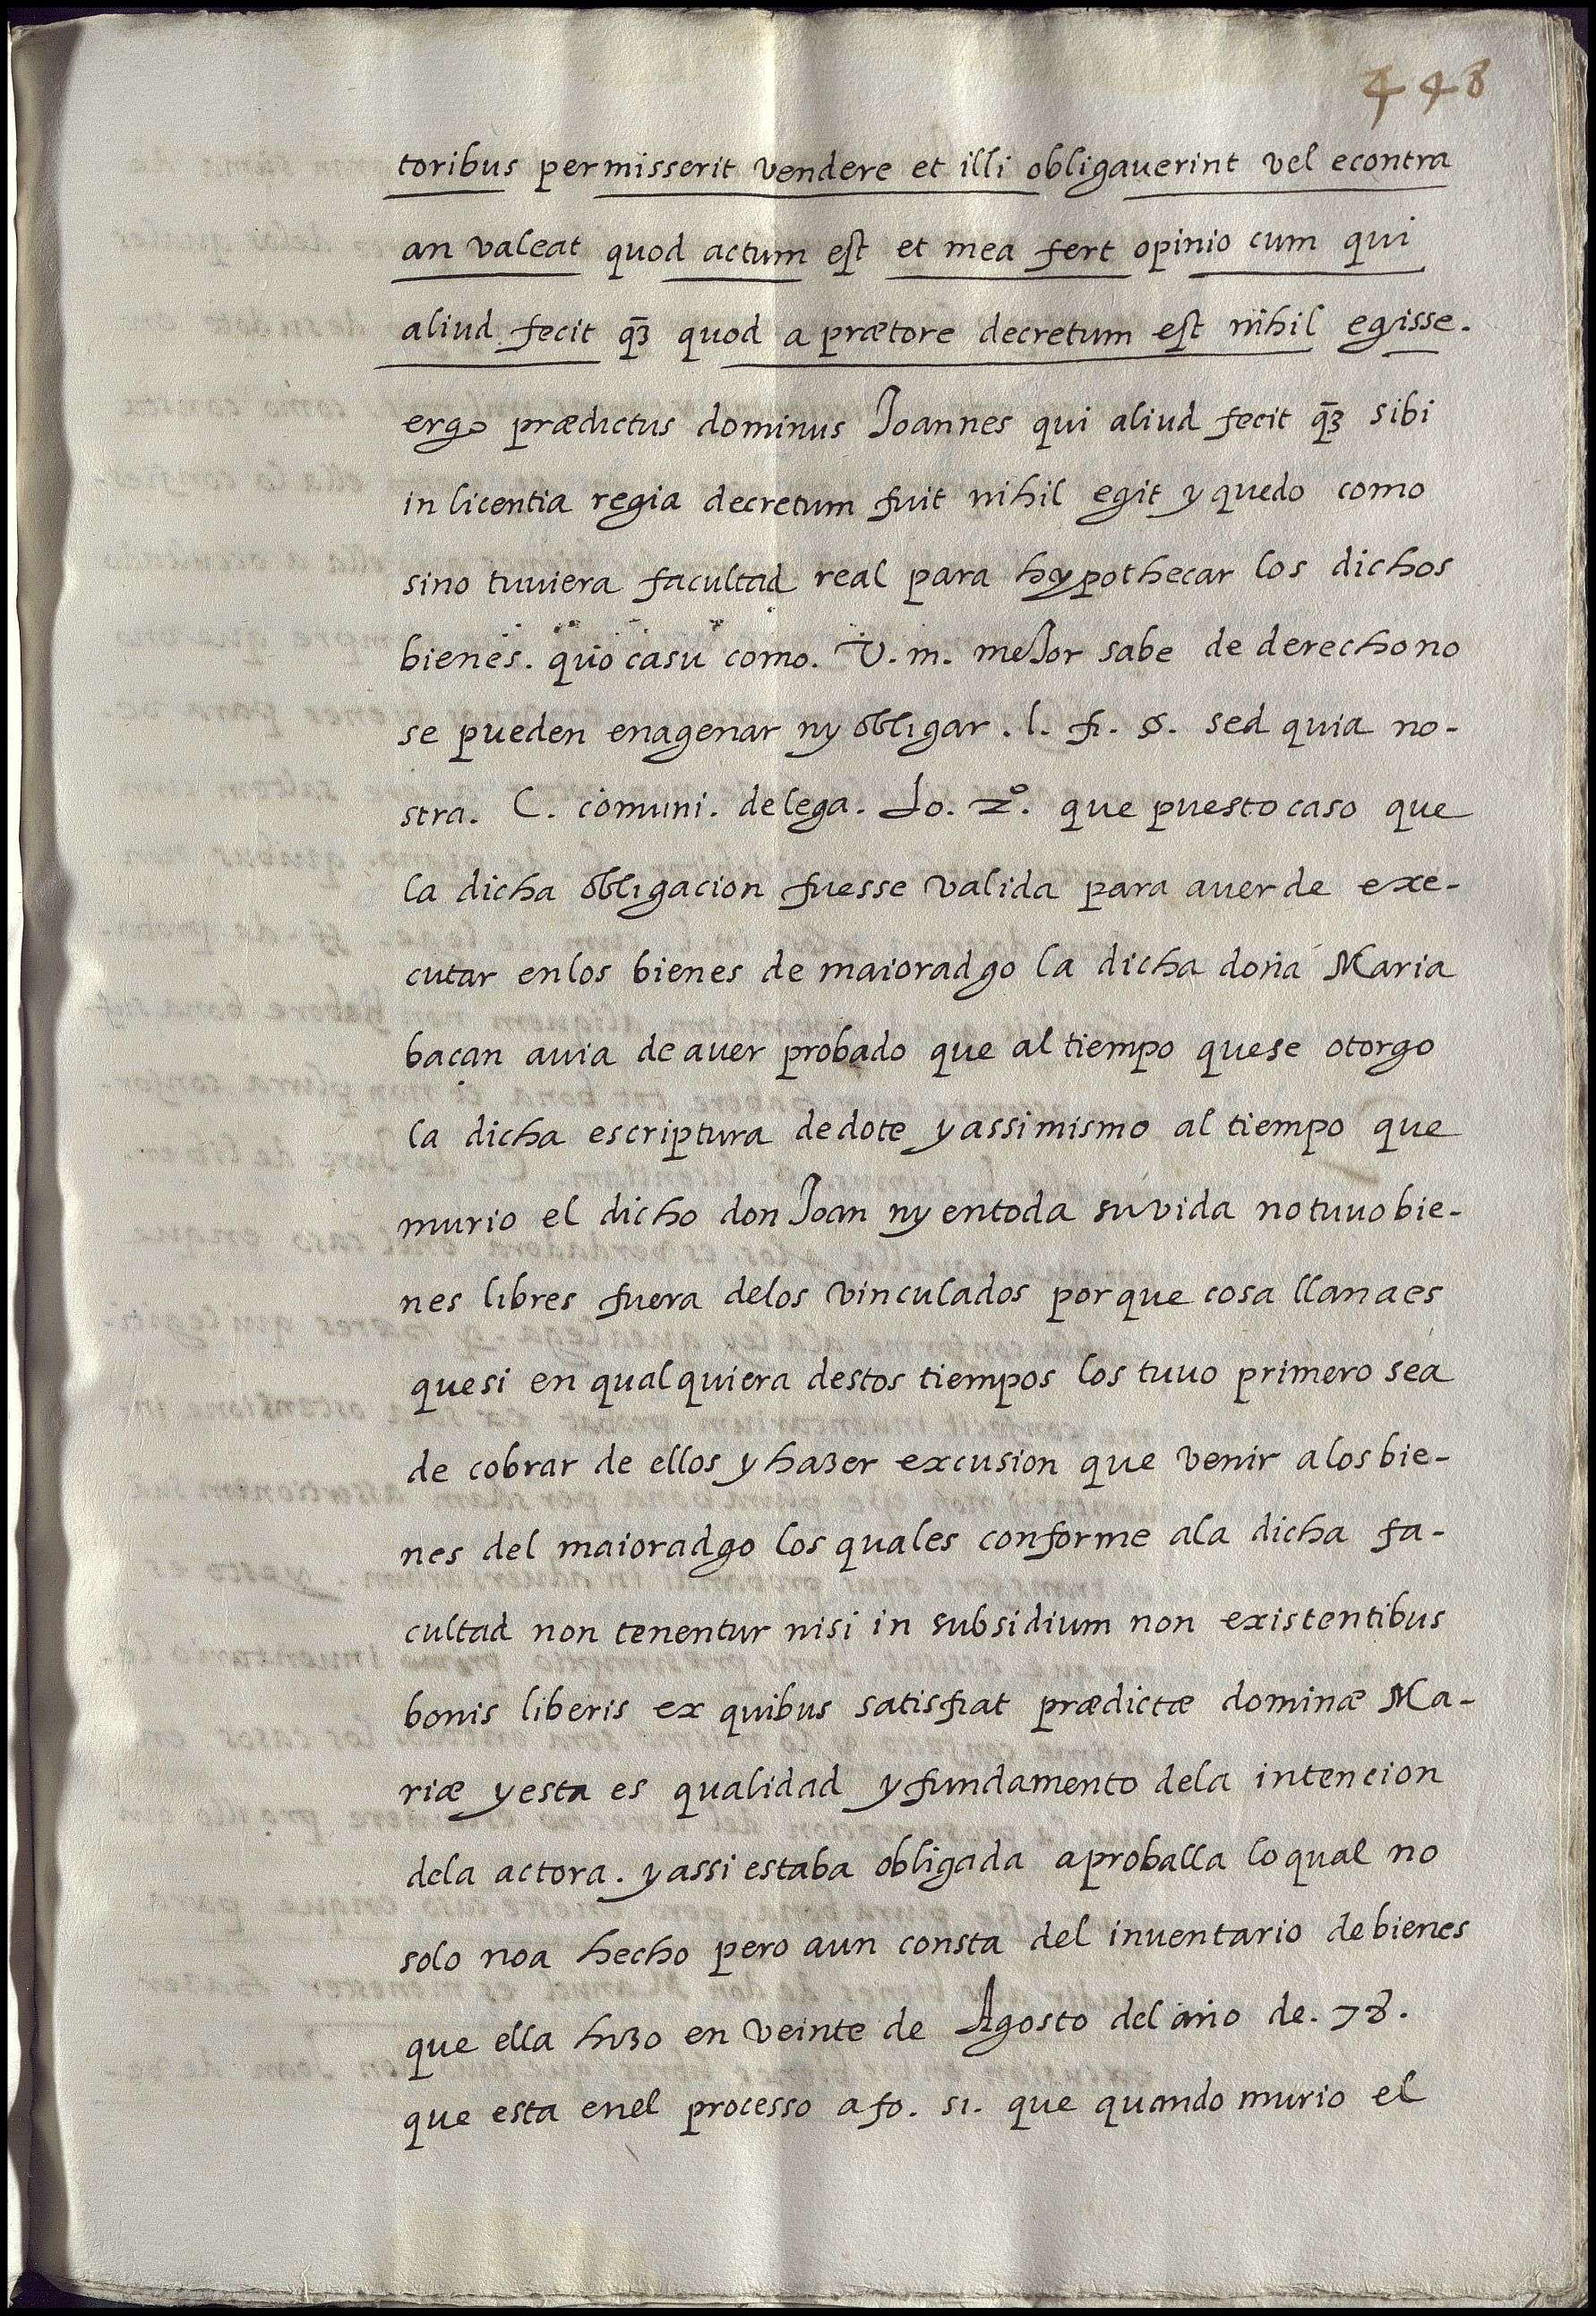 448
toribus permisserit vendere et illi obligauerint vel econtra
an valeat quod actum est et mea fert opinio cum qui
aliud fecit q̄ȝ quod a prætore decretum est nihil egisse.
ergo prædictus dominus Joannes qui aliud fecit q̄ȝ sibi
in licentia regia decretum fuit nihil egit y quedo como
sino tuuiera facultad real para hypothecar los dichos
bienes. quo casu como. V. m. meJor sabe de derecho no
se pueden enagenar ny obligar. l. fi. §. sed quia no-
stra. C. comuni. de lega. Lo. 2º. que puesto caso que
la dicha obligacion fuesse valida para auer de exe-
cutar enlos bienes de maioradgo la dicha doña Maria
baçan auia de auer probado que al tiempo quese otorgo
la dicha escriptura de dote y assimismo al tiempo que
murio el dicho don Joan ny entoda su vida no tuuo bie-
nes libres fuera delos vinculados por que cosa llana es
que si en qualquiera destos tiempos los tuuo primero sea
de cobrar de ellos y hazer excusion que venir a los bie-
nes del maioradgo los quales conforme ala dicha fa-
cultad non tenentur nisi in subsidium non existentibus
bonis liberis ex quibus satisfiat prædictæ dominæ Ma-
riæ y esta es qualidad y fundamento dela intencion
dela actora. y assi estaba obligada a proballa lo qual no
solo no a hecho pero aun consta del inuentario de bienes
que ella hizo en veinte de Agosto del año de. 78.
que esta enel processo a fo. 51. que quando murio el